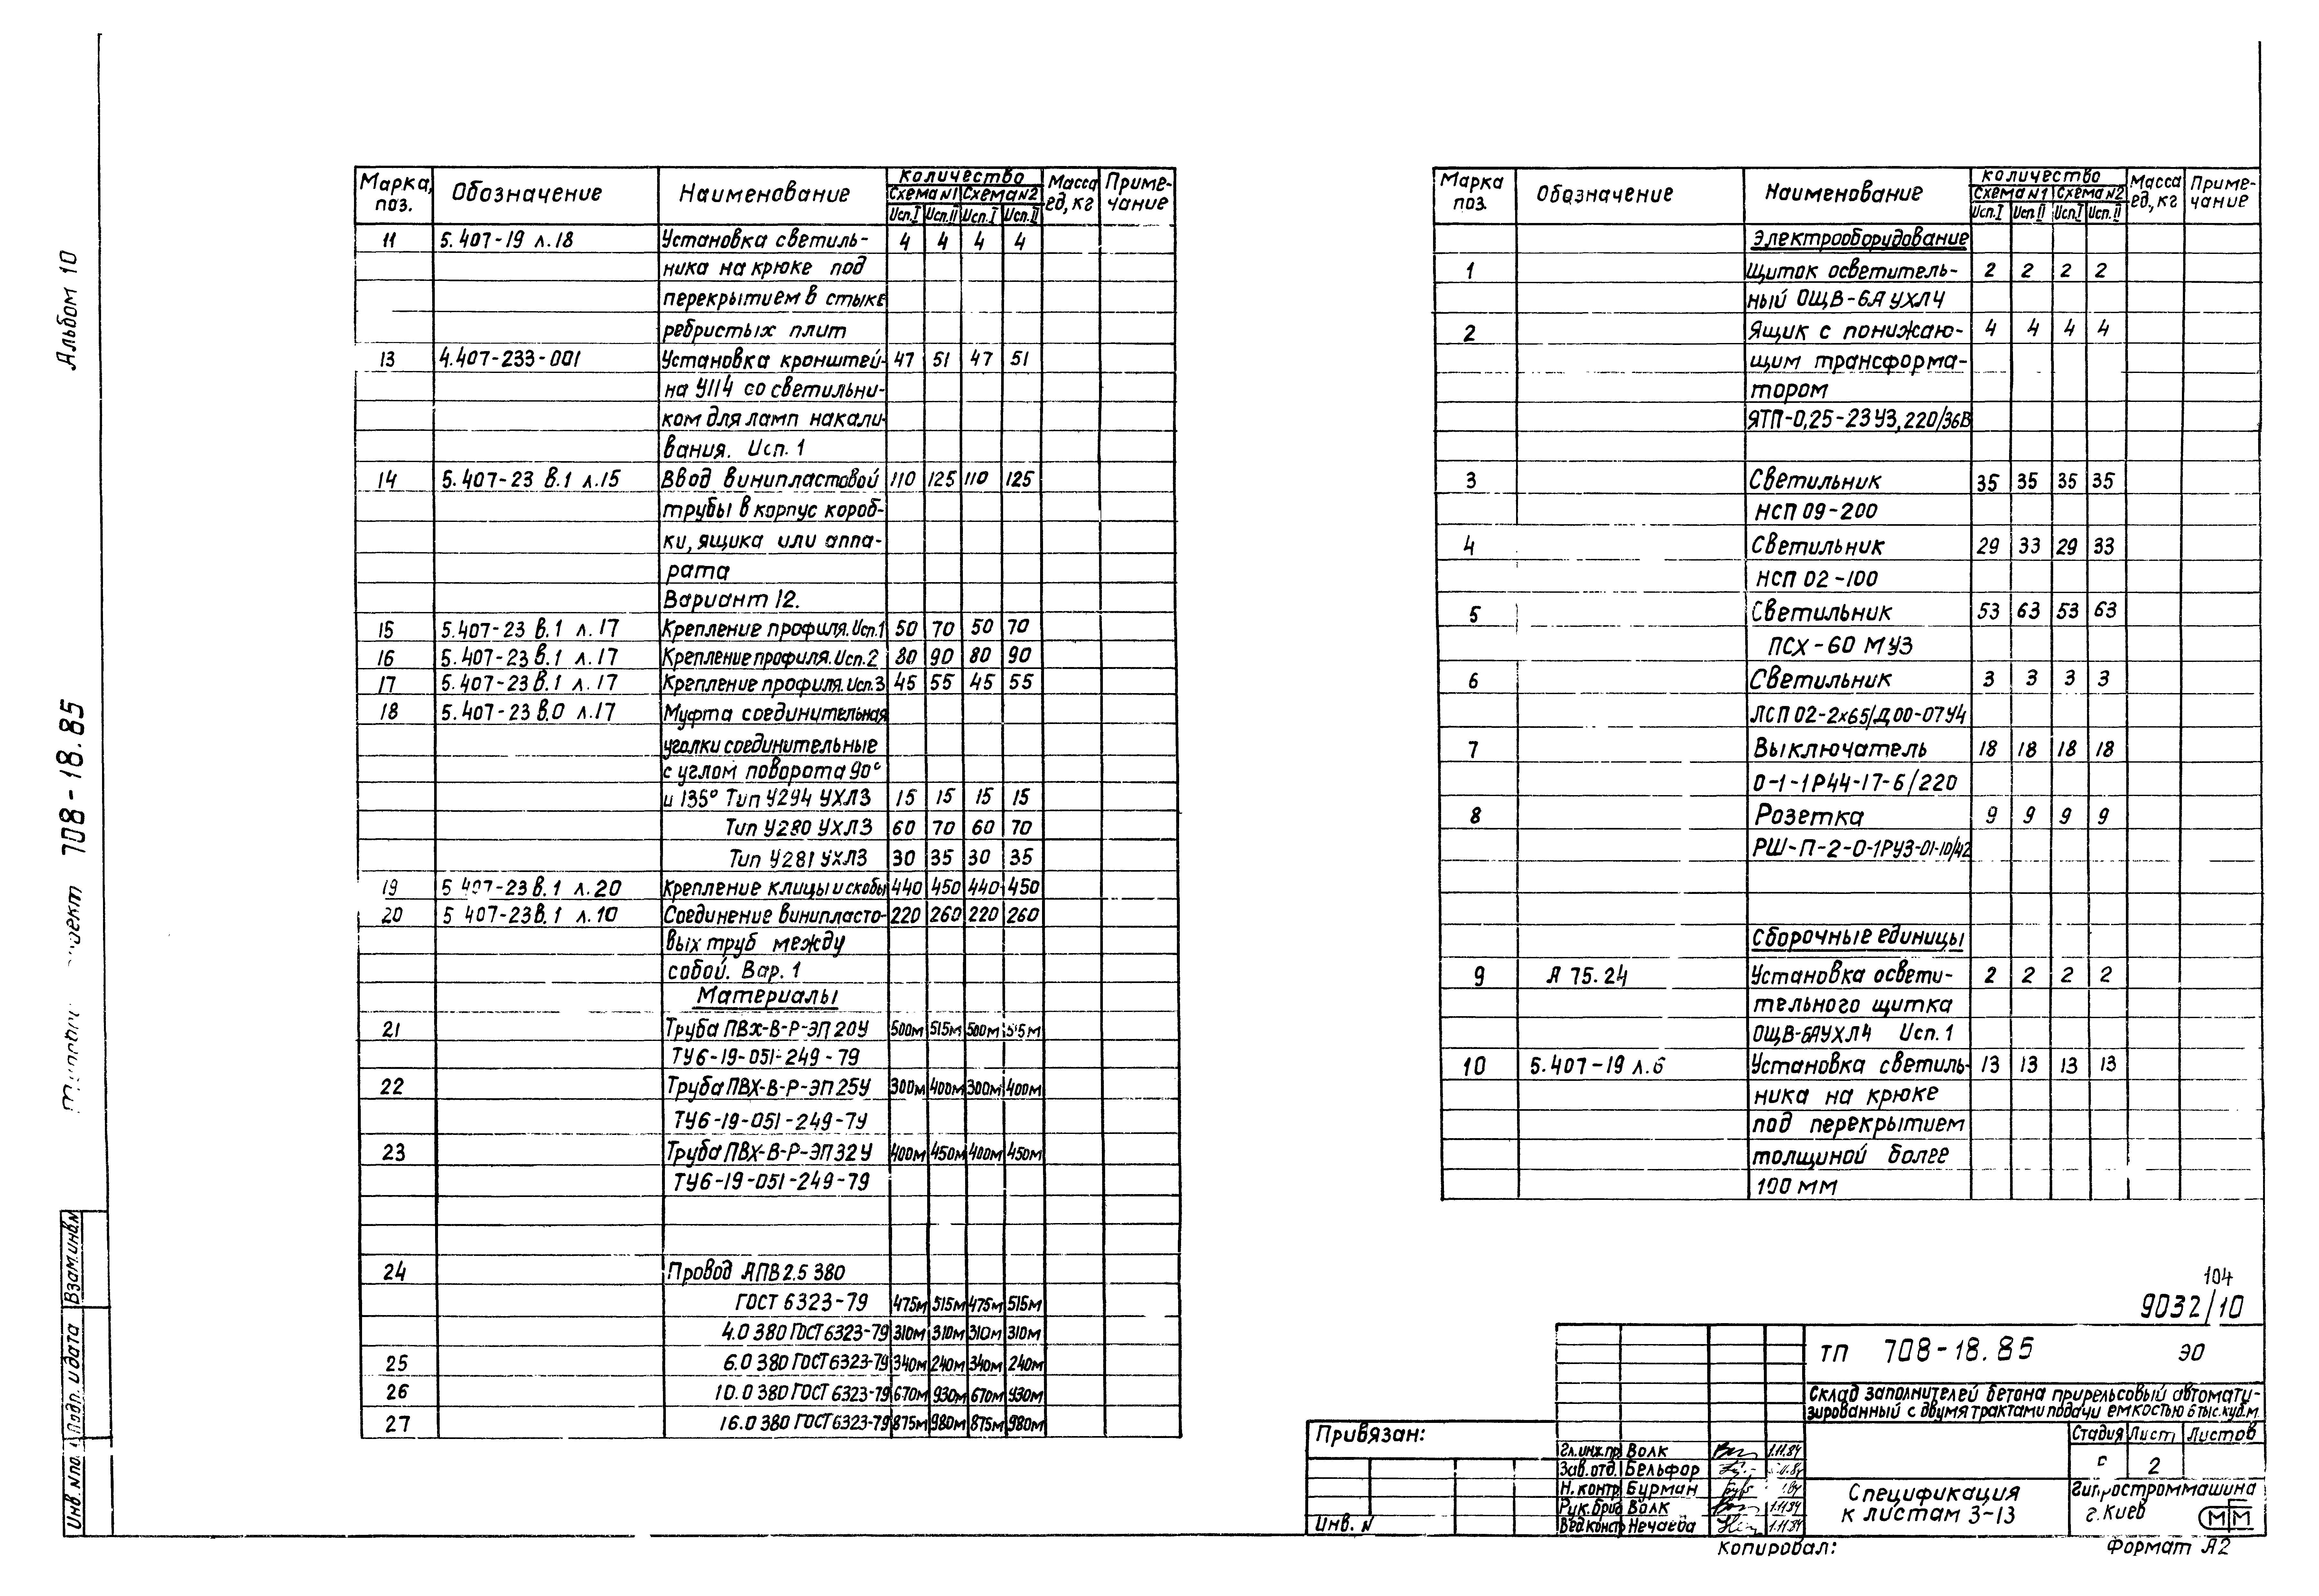 Альбом 10
708-18.85
Взам.инв.N
Подп. и дата
Инв. N по
Марка, поз. Обозначение Наименование Количество Масса ед, кг Приме-чание
Схема N1 Схема N2
Исп.I Исп.II Исп.I Исп.II
11 5.407-19 л.18 Установка светиль- 4 4 4 4
ника на крюке под
перекрытием в стыке
ребристых плит
13 4.407-233-001 Установка кронштей- 47 51 47 51
на У114 со светильни-
ком для ламп накали-
вания. Исп. 1
14 5.407-23 в.1 л.15 Ввод винипластовой 110 125 110 125
трубы в корпус короб-
ки, ящика или аппа-
рата
Вариант 12.
15 5.407-23 в.1 л.17 Крепление профиля. Исп.1 50 70 50 70
16 5.407-23 в.1 л.17 Крепление профиля. Исп.2 80 90 80 90
17 5.407-23 в.1 л.17 Крепление профиля. Исп.3 45 55 45 55
18 5.407-23 в.0 л.17 Муфта соединительная
уголки соединительные
с углом поворота 90°
и 135° Тип У294 УХЛ3 15 15 15 15
Тип У280 УХЛ3 60 70 60 70
Тип У281 УХЛ3 30 35 30 35
19 5 407-23 в.1 л.20 Крепление клицы и скобы 440 450 440 450
20 5 407-23в.1 л.10 Соединение винипласто- 220 260 220 260
вых труб между
собой. Вар. 1
Материалы
21 Труба ПВХ-В-Р-ЭП 20У 500м 515м 500м 515м
ТУ6-19-051-249-79
22 Труба ПВХ-В-Р-ЭП 25У 300м 400м 300м 400м
ТУ6-19-051-249-79
23 Труба ПВХ-В-Р-ЭП 32У 400м 450м 400м 450м
ТУ6-19-051-249-79
24 Провод АПВ 2.5 380
ГОСТ 6323-79 475м 515м 475м 515м
4.0 380 ГОСТ 6323-79 310м 310м 310м 310м
25 6.0 380 ГОСТ 6323-79 340м 240м 340м 240м
26 10.0 380 ГОСТ 6323-79 670м 930м 670м 930м
27 16.0 380 ГОСТ 6323-79 875м 980м 875м 980м
Марка поз. Обозначение Наименование Количество Масса ед., кг Приме-чание
Схема N1 Схема N2
Исп.I Исп II Исп.I Исп. II
Электрооборудование
1 Щиток осветитель- 2 2 2 2
ный ОЩВ-6А УХЛ4
2 Ящик с понижаю- 4 4 4 4
щим трансформа-
тором
ЯТП-0,25-23 У3, 220/36В
3 Светильник 35 35 35 35
НСП 09-200
4 Светильник 29 33 29 33
НСП 02-100
5 Светильник 53 63 53 63
ПСХ-60 М У3
6 Светильник 3 3 3 3
ЛСП 02-2х65/Д00-07У4
7 Выключатель 18 18 18 18
0-1-1Р44-17-6/220
8 Розетка 9 9 9 9
РШ-П-2-0-1РУ3-01-10/42
Сборочные единицы
9 А 75.24 Установка освети- 2 2 2 2
тельного щитка
ОЩВ-6АУХЛ4 Исп. 1
10 5.407-19 л.6 Установка светиль- 13 13 13 13
ника на крюке
под перекрытием
толщиной более
100 мм
104
9032/10
ТП 708-18.85 ЭО
Склад заполнителей бетона прирельсовый автомати-
зированный с двумя трактами подачи емкостью 6 тыс.куб.м
Привязан:
Инв. N
Гл.инж.пр Волк 1.11.84
Зав.отд. Бельфор
Н.контр Бурман
Рук.бриг Волк 1.11.84
Вед.констр Нечаева 1.11.84
Стадия Лист Листов
Р 2
Спецификация
к листам 3-13
Гипростроммашина
г. Киев
Копировал:
Формат А2